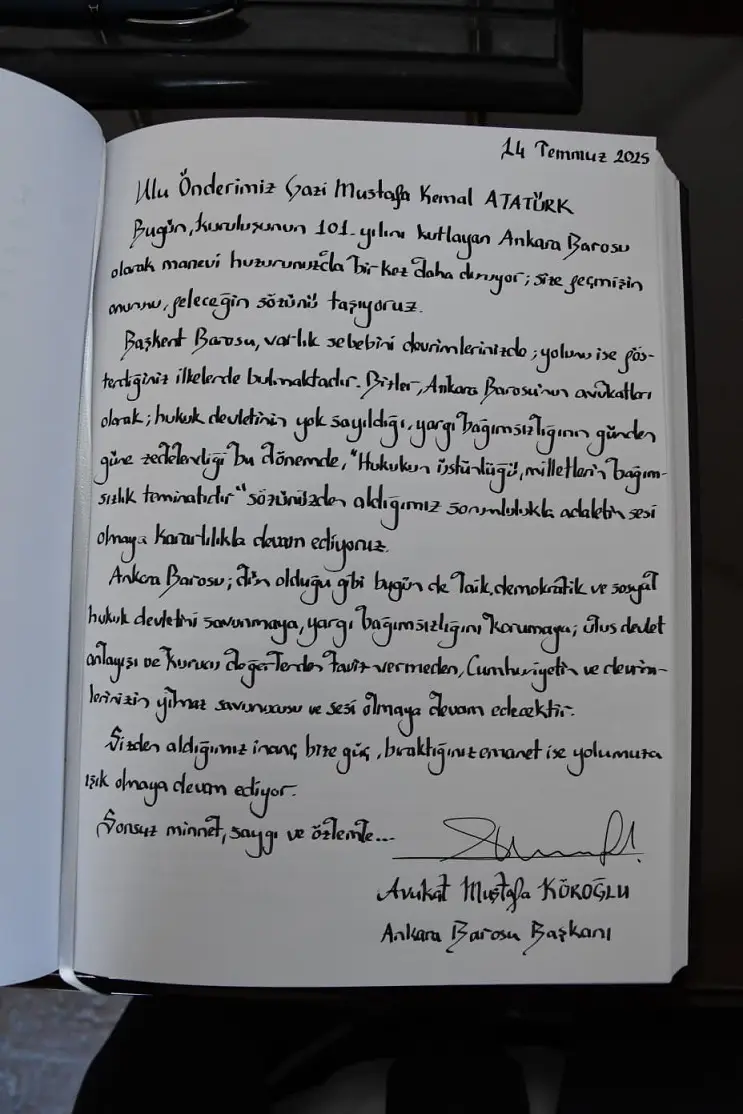 14 Temmuz 2025
Ulu Önderimiz Gazi Mustafa Kemal ATATÜRK
Bugün, kuruluşunun 101. yılını kutlayan Ankara Barosu
olarak manevi huzurunuzda bir kez daha duruyor; size geçmişin
onurunu, geleceğin sözünü taşıyoruz.
Başkent Barosu, varlık sebebini devrimlerinizde; yolunu ise gös-
terdiğiniz ilkelerde bulmaktadır. Bizler, Ankara Barosu'nun avukatları
olarak; hukuk devletinin yok sayıldığı, yargı bağımsızlığının günden
güne zedelendiği bu dönemde, "Hukukun üstünlüğü, milletlerin bağım-
sızlık teminatıdır" sözünüzden aldığımız sorumlulukla adaletin sesi
olmaya kararlılıkla devam ediyoruz.
Ankara Barosu; dün olduğu gibi bugün de laik, demokratik ve sosyal
hukuk devletini savunmaya, yargı bağımsızlığını korumaya; ulus devlet
anlayışı ve kurucu değerlerden taviz vermeden, Cumhuriyetin ve devrim-
lerinizin yılmaz savunucusu ve sesi olmaya devam edecektir.
Sizden aldığımız inanç bize güç, bıraktığınız emanet ise yolumuza
ışık olmaya devam ediyor.
Sonsuz minnet, saygı ve özlemle...
Avukat Mustafa KÖROĞLU
Ankara Barosu Başkanı